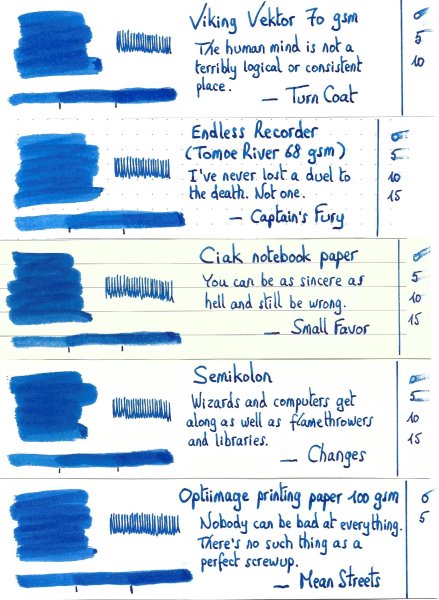 Viking Vektor 70 gsm
The human mind is not a
terribly logical or consistent
place.
— Turn Coat
0
5
10
Endless Recorder
(Tomoe River 68 gsm)
I've never lost a duel to
the death. Not one.
— Captain's Fury
0
5
10
15
Ciak notebook paper
You can be as sincere as
hell and still be wrong.
— Small Favor
0
5
10
15
Semikolon
Wizards and computers get
along as well as flamethrowers
and libraries.
— Changes
0
5
10
15
Optiimage printing paper 100 gsm
Nobody can be bad at everything.
There's no such thing as a
perfect screwup.
— Mean Streets
0
5